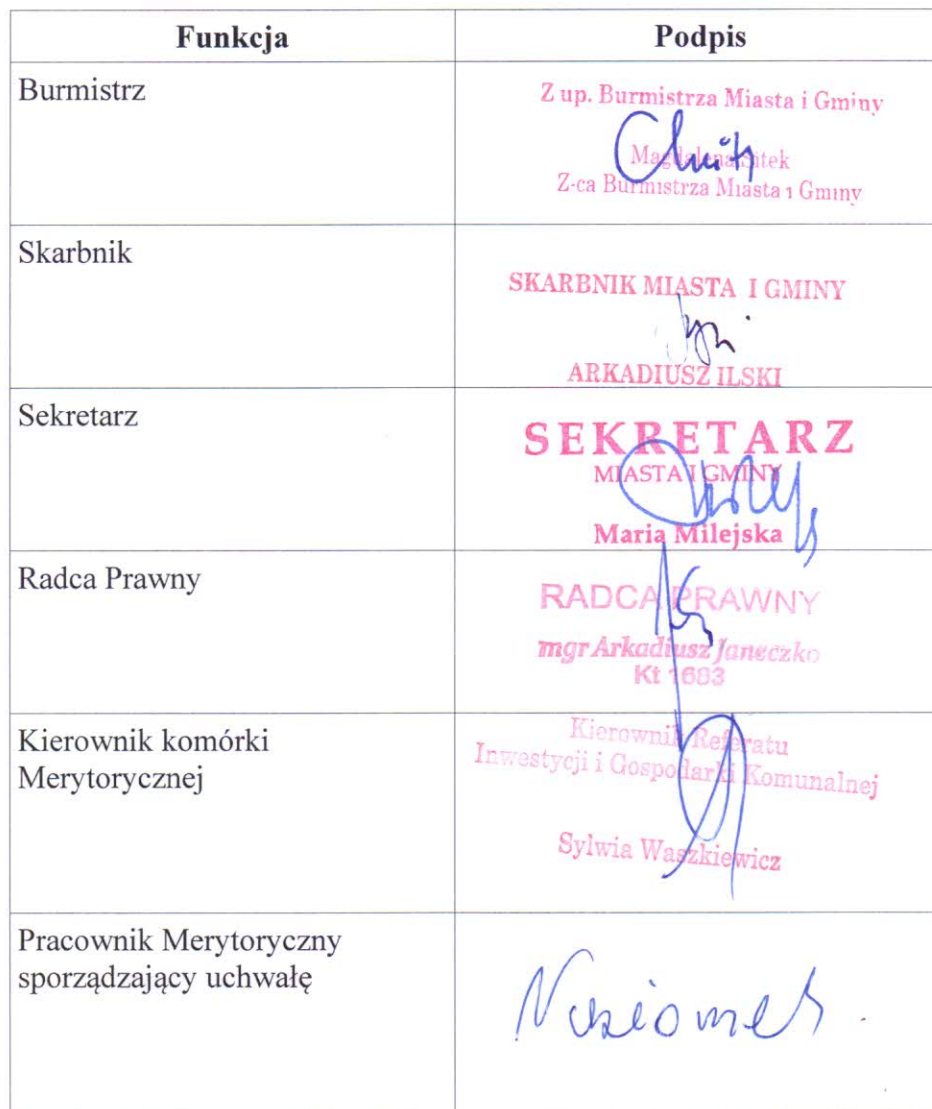 Funkcja Podpis
Burmistrz
Z up. Burmistrza Miasta i Gminy
Magdalena Sitek
Z-ca Burmistrza Miasta i Gminy
Skarbnik
SKARBNIK MIASTA I GMINY
ARKADIUSZ ILSKI
Sekretarz
SEKRETARZ
MIASTA I GMINY
Maria Milejska
Radca Prawny
RADCA PRAWNY
mgr Arkadiusz Janeczko
Kt 1683
Kierownik komórki
Merytorycznej
Kierownik Referatu
Inwestycji i Gospodarki Komunalnej
Sylwia Waszkiewicz
Pracownik Merytoryczny
sporządzający uchwałę